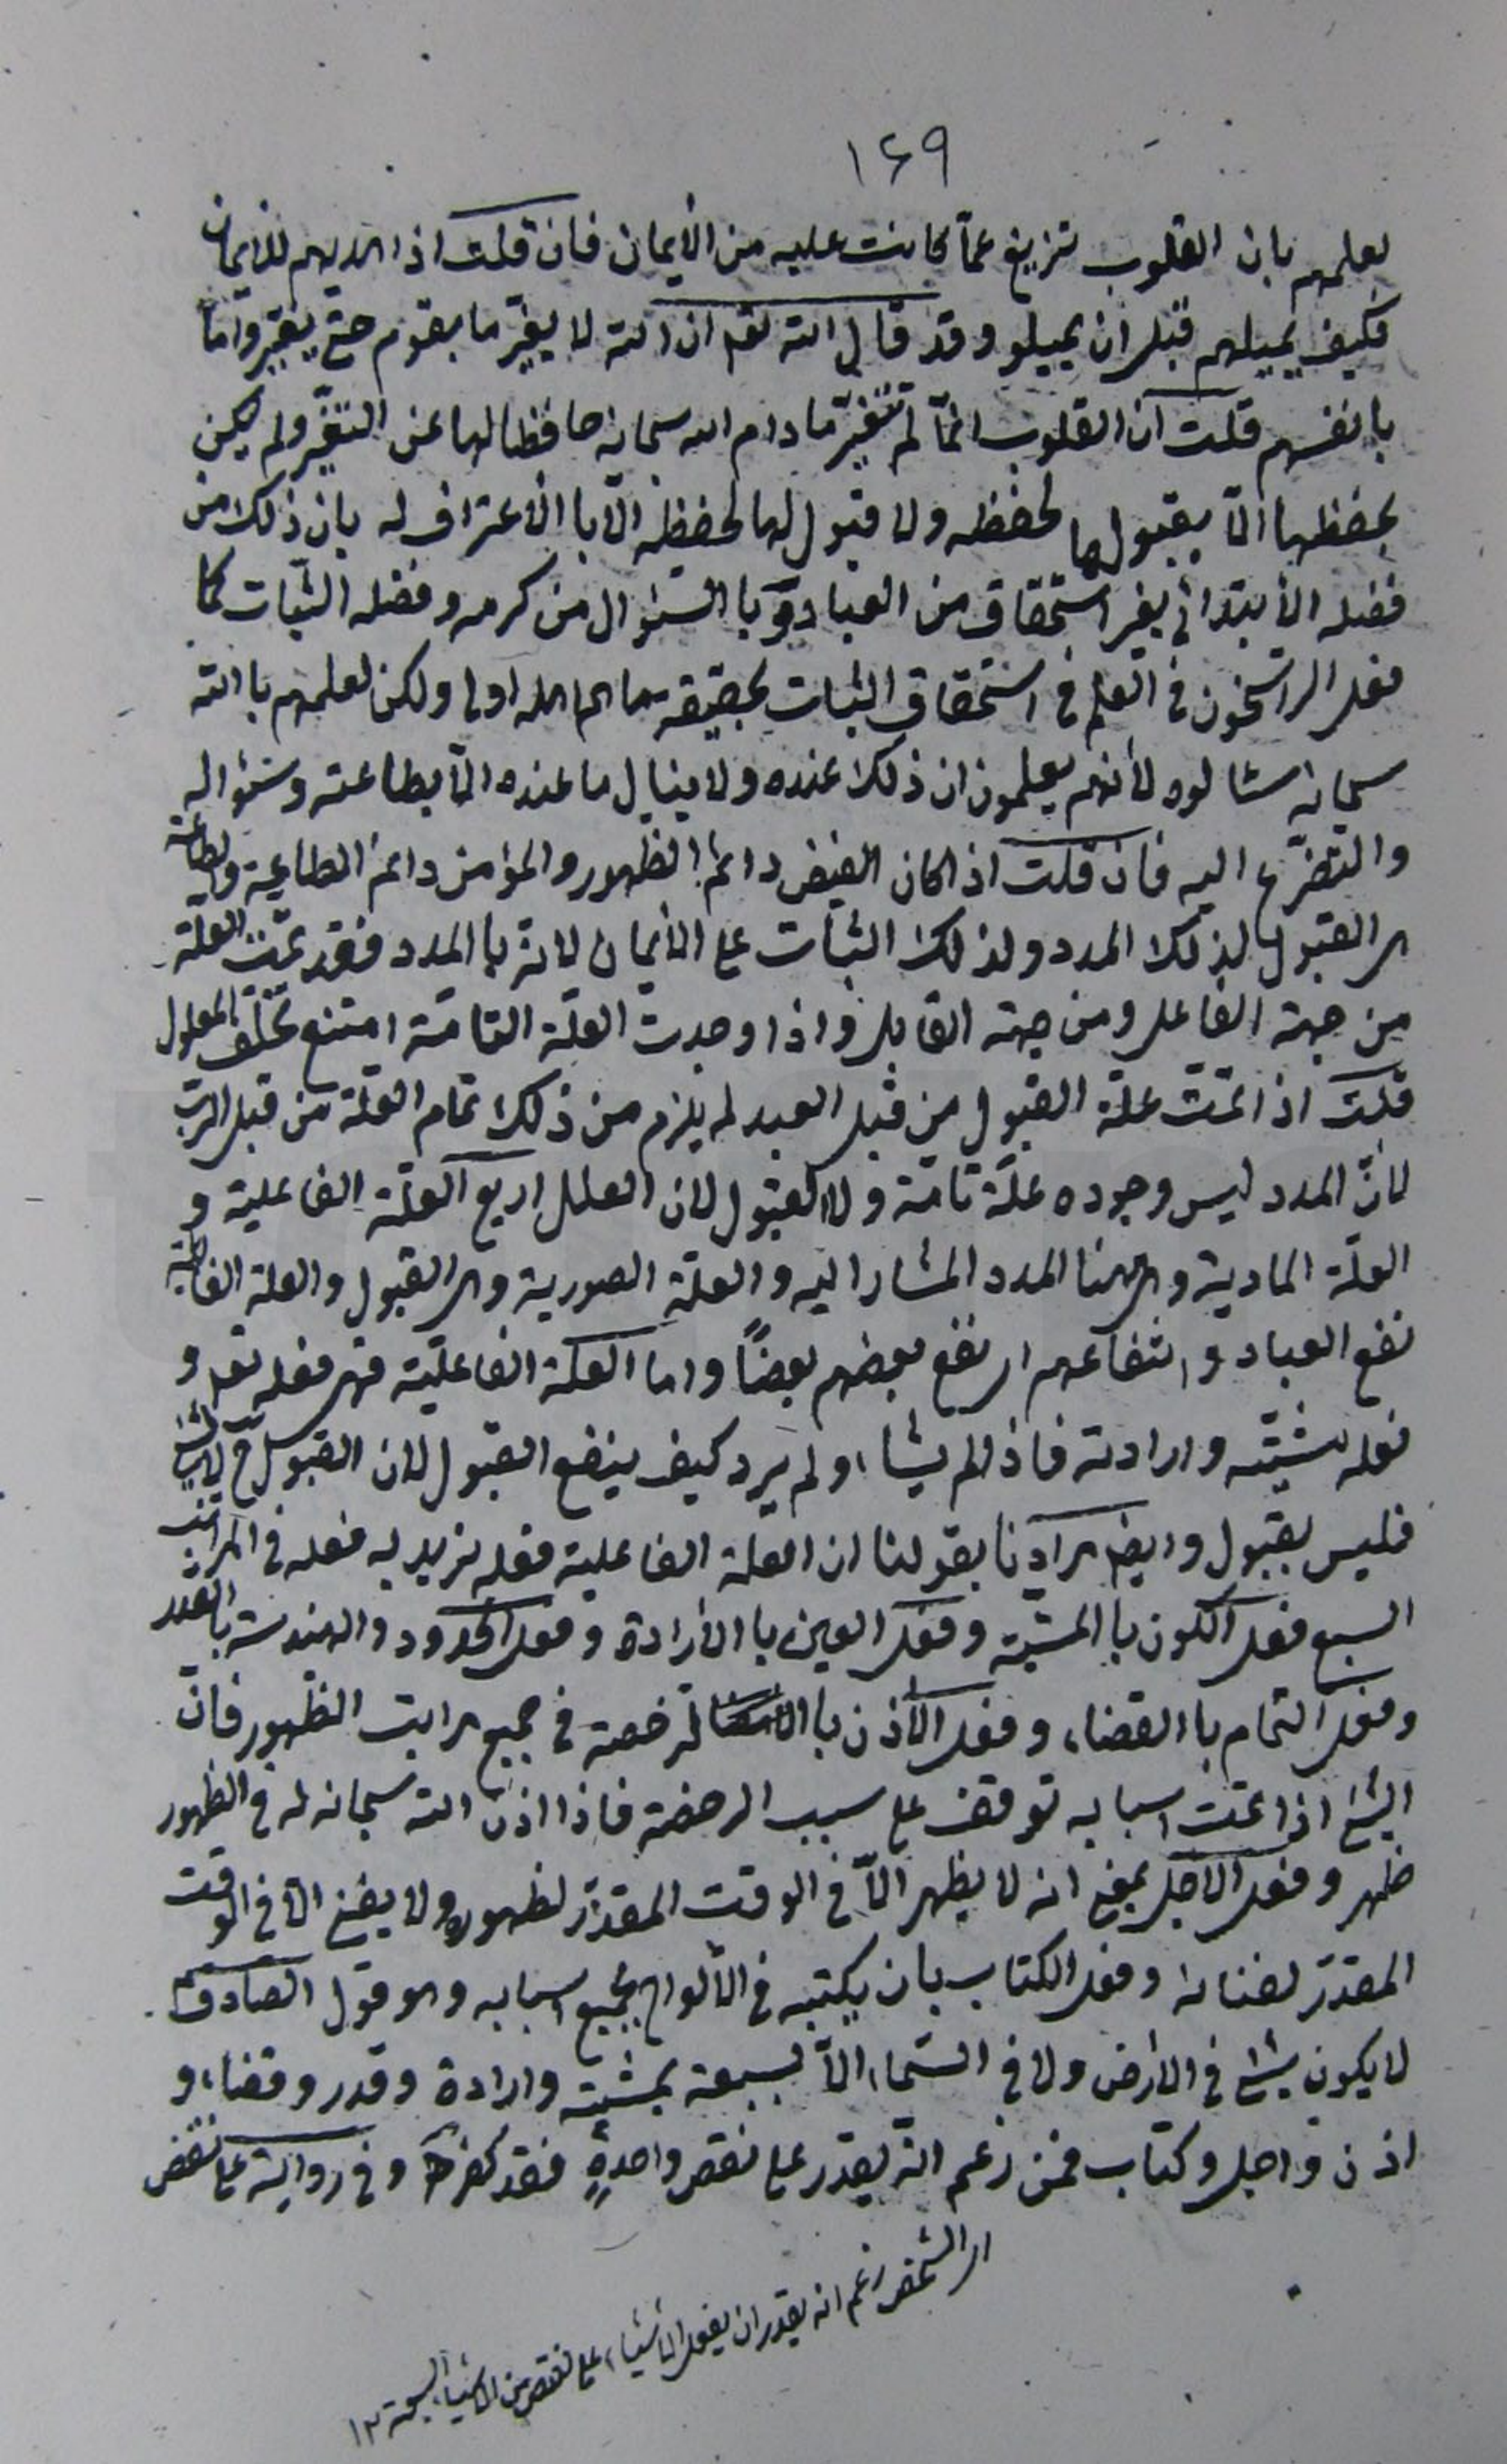 ١٤٩
لعلمهم بان القلوب تزيغ عمّا كانت عليه من الأيمان فان قلت اذا هديهم للايمان
فكيف يميلهم قبل ان يميلو وقد قال الله تع ان الله لا يغيّر ما بقوم حتى يغيّروا ما
بانفسهم قلت ان القلوب انمّا لم تتغيّر ما دام الله سبحانه حافظا لها عن التغيّر ولم يكن
يحفظها الّا بقبولها لحفظه ولا قبول لها لحفظه الّا باالأعتراف له بان ذلك من
فضله الأبتدائي بغير استحقاق من العباد وباالسئوال من كرمه وفضله الثبات كما
فعل الراسخون في العلم في استحقاق الثبات بحقيقة ما هم اهله اولى ولكن لعلمهم باالله
سبحانه سئالوه لأنهم يعلمون ان ذلك عنده ولا ينال ما عنده الّا بطاعته وسئواله
والتضرّع اليه فان قلت اذا كان الفيض دائم الظهور والمؤمن دائم الطاعة وبطاعته
هى القبول لذلك المدد ولذلك الثبات على الأيمان لانه باالمدد فقد تمّت العلة
من جهة الفاعل ومن جهة القابل واذا وجدت العلّة التامّة امتنع تخلّف المعلول
قلت اذا تمّت علّة القبول من قبل العبد لم يلزم من ذلك تمام العلّة من قبل الربّ
لأنّ المدد ليس وجوده علّة تامّة ولا القبول لان العلل اربع العلّة الفاعلية و
العلّة المادية وهى هنا المدد المشار اليه والعلّة الصورية وهى القبول والعلة الغائية
نفع العباد وانتفاعهم اى نفع بعضهم بعضًا واما العلّة الفاعليّة فهى فعله تع و
فعله مشيّته وارادته فاذا لم يشاء ولم يرد كيف ينفع القبول لان القبول ح لا شيء
فليس بقبول وايضا مرادنا بقولنا ان العلّة الفاعلية فعله نريد به فعله في المراتب
السبع فعل الكون باالمشيّة وفعل العين باالأرادة وفعل الحدود والهندسة باالقدر
وفعل التمام باالقضاء وفعل الأذن لترخصه في جميع مراتب الظهور فانّ
الشئ اذا تمّت اسبابه توقف على سبب الرخصة فاذا اذن الله سبحانه له في الظهور
ظهر وفعل الاجل بمعنى انه لا يظهر الّا في الوقت المقدّر لظهوره ولا يفنى الّا في الوقت
المقدّر لفنائه وفعل الكتاب بان يكتبه في الألواح بجميع اسبابه وهو قول الصادق
لا يكون شئ في الارض ولا في السّماء الّا بسبعة بمشيّة وارادة وقدر وقضاء و
اذن واجل وكتاب فمن زعم انّه يقدر على نقص واحدةٍ فقد كفر وفي رواية على نقض
اى الشخص زعم انه يقدر ان يفعل الأشياء على نقص من الأشياء السبعة ١٢